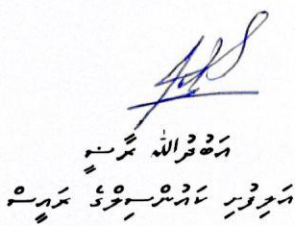 އަބްދުﷲ ރާޟީ
އަލިފުށި ކައުންސިލްގެ ރައީސް